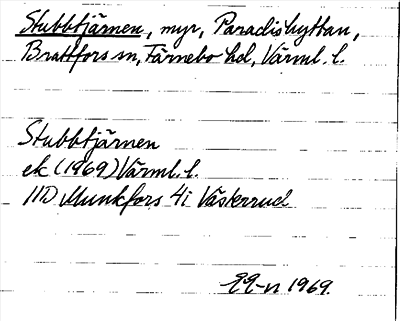 Stubbtjärnen, myr, Paradishyttan,
Brattfors sn, Färnebo hd, Värml. l.
Stubbtjärnen
ek (1969) Värml. l.
11D Munkfors 4i Västerrud
1969.